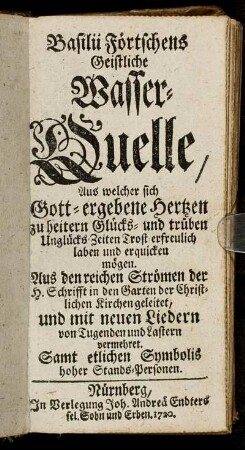 Basilii Förtschens
Geistliche
Wasser-
Quelle,
Aus welcher sich
Gott-ergebene Hertzen
zu heitern Glücks- und trüben
Unglücks-Zeiten Trost erfreulich
laben und erquicken
mögen.
Aus den reichen Strömen der
H. Schrifft in den Garten der Christ-
lichen Kirchen geleitet,
und mit neuen Liedern
von Tugenden und Lastern
vermehret.
Samt etlichen Symbolis
hoher Stands-Personen.
Nürnberg,
In Verlegung Joh. Andreä Endters
sel. Sohn und Erben. 1720.